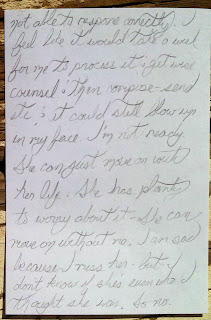 not able to respone correctly. I
feel like it would take a week
for me to process it, get wise
counsel, then compose - send
it & it could still blow up
in my face. I'm not ready.
She can just move on with
her life. She has plenty
to worry about it - She can
move on without me. I am sad
because I miss her - but I
don't know if she's even who I
thought she was. So no.